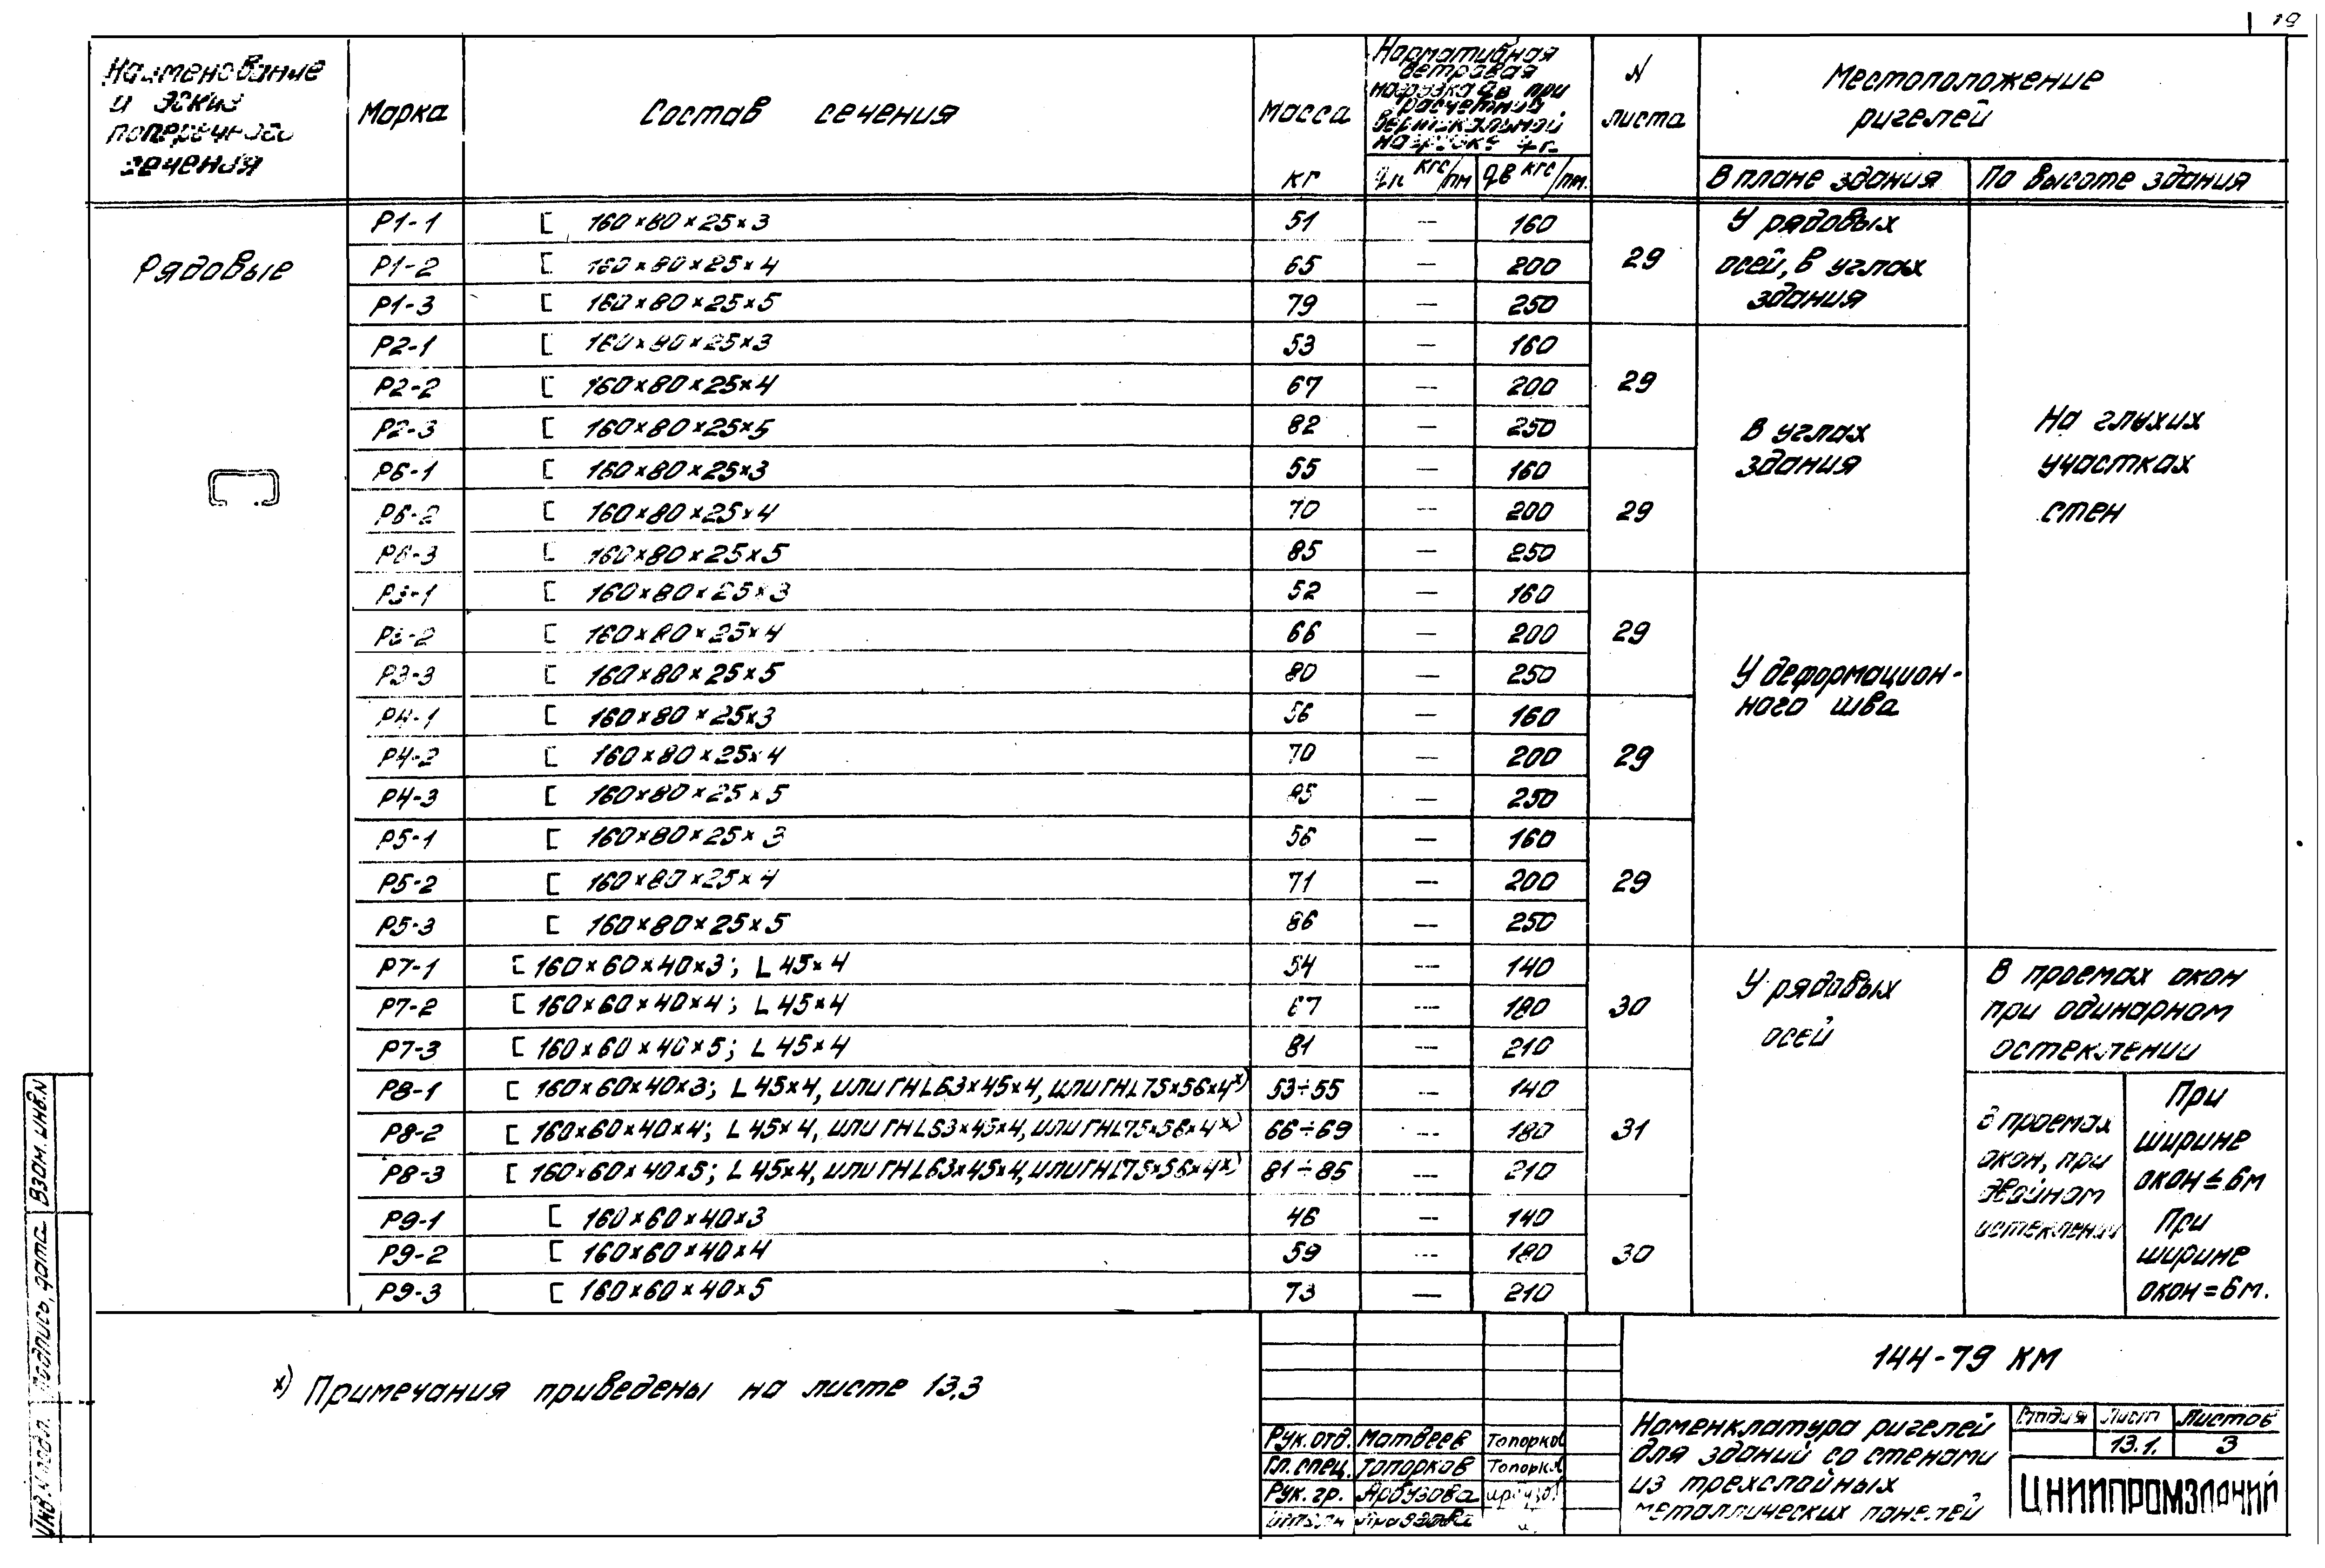 19
Наименование и эскиз поперечного сечения
Марка
Состав сечения
Масса кг
Нормативная ветровая нагрузка qв при расчетной вертикальной нагрузке qг.
qп кгс/пм
qв кгс/пм.
N листа
Местоположение ригелей
В плане здания
По высоте здания
Рядовые
Р1-1 [ 160×80×25×3 51 — 160
Р1-2 [ 160×80×25×4 65 — 200
Р1-3 [ 160×80×25×5 79 — 250
29
У рядовых осей, в углах здания
Р2-1 [ 160×80×25×3 53 — 160
Р2-2 [ 160×80×25×4 67 — 200
Р2-3 [ 160×80×25×5 82 — 250
29
Р6-1 [ 160×80×25×3 55 — 160
Р6-2 [ 160×80×25×4 70 — 200
Р6-3 [ 160×80×25×5 85 — 250
29
В углах здания
На глухих участках стен
Р3-1 [ 160×80×25×3 52 — 160
Р3-2 [ 160×80×25×4 66 — 200
Р3-3 [ 160×80×25×5 80 — 250
29
Р4-1 [ 160×80×25×3 56 — 160
Р4-2 [ 160×80×25×4 70 — 200
Р4-3 [ 160×80×25×5 85 — 250
29
У деформацион-
ного шва
Р5-1 [ 160×80×25×3 56 — 160
Р5-2 [ 160×80×25×4 71 — 200
Р5-3 [ 160×80×25×5 86 — 250
29
Р7-1 [ 160×60×40×3; L 45×4 54 — 140
Р7-2 [ 160×60×40×4; L 45×4 67 — 180
Р7-3 [ 160×60×40×5; L 45×4 81 — 210
30
У рядовых осей
В проемах окон при одинарном остеклении
Р8-1 [ 160×60×40×3; L 45×4, или ГН L 63×45×4, или ГН L 75×56×4 х) 53÷55 — 140
Р8-2 [ 160×60×40×4; L 45×4, или ГН L 63×45×4, или ГН L 75×56×4 х) 66÷69 — 180
Р8-3 [ 160×60×40×5; L 45×4, или ГН L 63×45×4, или ГН L 75×56×4 х) 81÷85 — 210
31
В проемах окон, при двойном остеклении
При ширине окон ≤ 6м
Р9-1 [ 160×60×40×3 46 — 140
Р9-2 [ 160×60×40×4 59 — 180
Р9-3 [ 160×60×40×5 73 — 210
30
При ширине окон = 6м.
х) Примечания приведены на листе 13.3
144-79 КМ
Рук. отд. Матвеев Топорков
Гл. спец. Топорков Топорков
Рук. гр. Арбузова
Номенклатура ригелей
для зданий со стенами
из трехслойных
металлических панелей
Стадия Лист Листов
13.1. 3
ЦНИИПРОМЗДАНИЙ
Инв. № подл. Подпись, дата Взам. инв. N